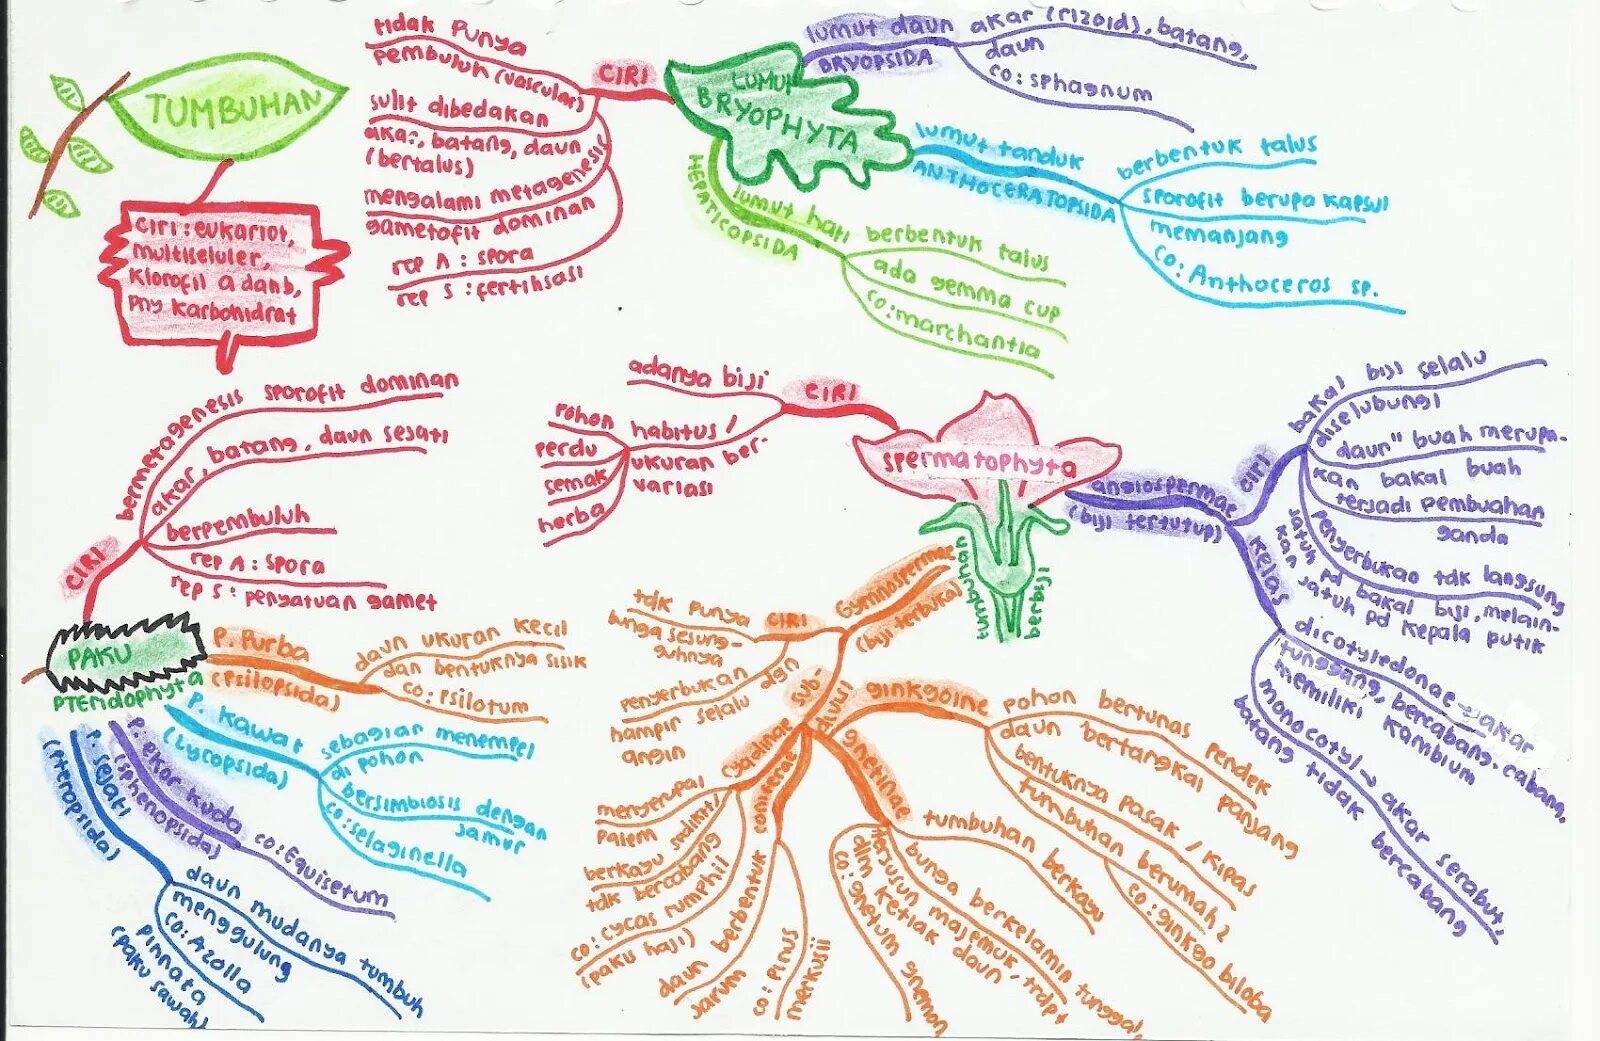 TUMBUHAN
ciri : eukariot,
multiseluler,
klorofil a dan b,
pny karbohidrat
LUMUT
BRYOPHYTA
CIRI
tidak punya
pembuluh (vascular)
sulit dibedakan
akar, batang, daun
(bertalus)
mengalami metagenesis
gametofit dominan
rep A : spora
rep S : fertilisasi
lumut daun
BRYOPSIDA
akar (rizoid), batang,
daun
co : sphagnum
lumut tanduk
ANTHOCERATOPSIDA
berbentuk talus
sporofit berupa kapsul
memanjang
co : Anthoceros sp.
lumut hati
HEPATICOPSIDA
berbentuk talus
ada gemma cup
co : marchantia
spermatophyta
tumbuhan
berbiji
CIRI
adanya biji
habitus /
ukuran ber-
variasi
pohon
perdu
semak
herba
angiospermae
(biji tertutup)
CIRI
bakal biji selalu
diselubungi
daun" buah merupa-
kan bakal buah
terjadi pembuahan
ganda
penyerbukan tdk langsung
jatuh pd bakal biji, melain-
kan jatuh pd kepala putik
kelas
dicotyledonae → akar
tunggang, bercabang-cabang,
memiliki kambium
monocotyl → akar serabut,
batang tidak bercabang
Gymnospermae
(biji terbuka)
CIRI
tdk punya
bunga sesung-
guhnya
penyerbukan
hampir selalu dgn
angin
sub-
divisi
ginkgoine
pohon bertunas pendek
daun bertangkai panjang
bentuknya pasak / kipas
tumbuhan berumah 2
co : ginkgo biloba
gnetinae
tumbuhan berkayu
bunga berkelamin tunggal,
tersusun majemuk, trdpt
dlm ketiak daun
co : gnetum gnemon
coniferae
daun berbentuk
jarum
co : pinus
merkusii
cycadinae
menyerupai
palem
berkayu sedikit /
tdk bercabang
co : cycas rumphii
(paku haji)
PAKU
PTERIDOPHYTA
CIRI
bermetagenesis sporofit dominan
akar, batang, daun sejati
berpembuluh
rep A : spora
rep S : penyatuan gamet
P. Purba
(Psilopsida)
daun ukuran kecil
dan bentuknya sisik
co : psilotum
P. Kawat
(Lycopsida)
sebagian menempel
di pohon
bersimbiosis dengan
jamur
co : selaginella
P. ekor kuda
(sphenopsida)
co : Equisetum
P. sejati
(Pteropsida)
daun mudanya tumbuh
menggulung
co : Azolla
pinnata
(paku sawah)